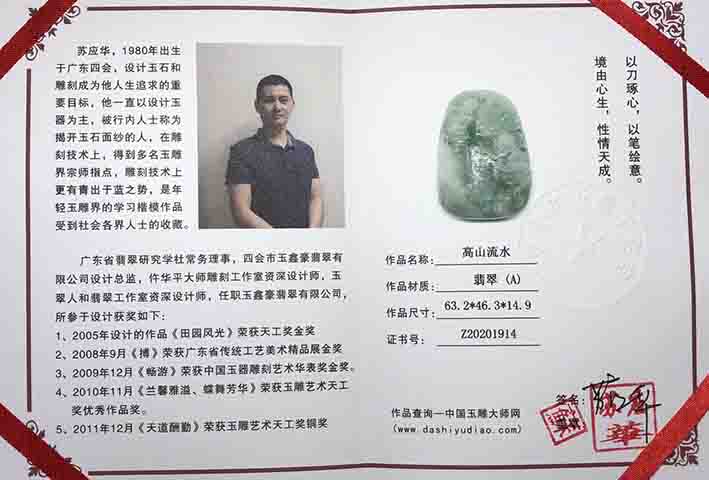 苏应华，1980年出生
于广东四会，设计玉石和
雕刻成为他人生追求的重
要目标，他一直以设计玉
器为主，被行内人士称为
揭开玉石面纱的人，在雕
刻技术上，得到多名玉雕
界宗师指点，雕刻技术上
更有青出于蓝之势，是年
轻玉雕界的学习楷模作品
受到社会各界人士的收藏。
广东省翡翠研究学社常务理事，四会市玉鑫豪翡翠有
限公司设计总监，仵华平大师雕刻工作室资深设计师，玉
翠人和翡翠工作室资深设计师，任职玉鑫豪翡翠有限公司，
所参于设计获奖如下：
1、2005年设计的作品《田园风光》荣获天工奖金奖
2、2008年9月《搏》荣获广东省传统工艺美术精品展金奖
3、2009年12月《畅游》荣获中国玉器雕刻艺术华表奖金奖。
4、2010年11月《兰馨雅溢、蝶舞芳华》荣获玉雕艺术天工
奖优秀作品奖。
5、2011年12月《天道酬勤》荣获玉雕艺术天工奖铜奖
以刀琢心，以笔绘意。
境由心生，性情天成。
作品名称： 高山流水
作品材质： 翡翠 (A)
作品尺寸： 63.2*46.3*14.9
证书号： Z20201914
作品查询—中国玉雕大师网
(www.dashiyudiao.com)
签名：